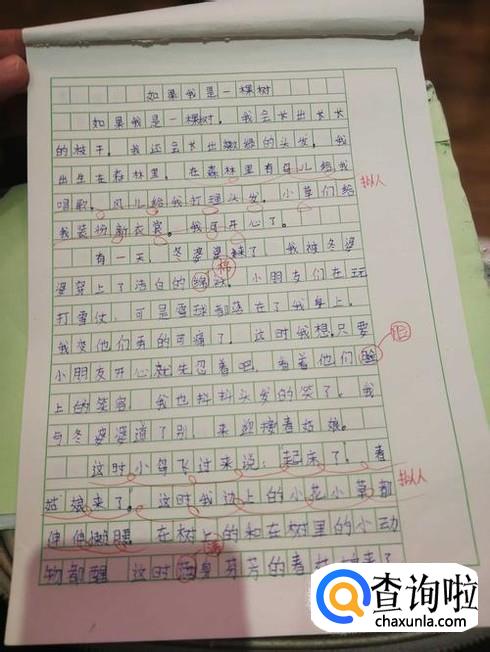 如果我是一棵树
如果我是一棵树，我会长出长长
的枝干，我还会长出嫩绿的头发，我
出生在森林里，在森林里有鸟儿给我
唱歌，风儿给我打理头发，小草们给
拟人
我装扮新衣裳。我可开心了。
有一天，冬婆婆来了，我被冬婆
棉
婆穿上了洁白的绵袄。小朋友们在玩
打雪仗，可是雪球都落在了我身上。
我受他们弄的可痛了，这时我想，只要
小朋友开心就先忍着吧，看着他们脸
脸
上的笑容，我也抖抖头发的笑了，我
与冬婆婆道了别，来迎接春姑娘。
这时小鸟飞过来说：起床了，春
姑娘来了，这时我边上的小花小草都
拟人
伸伸懒腰，在树上的和在树里的小动
物都醒，这时 身芬芳的春姑娘来了
查询啦
chaxunla.com